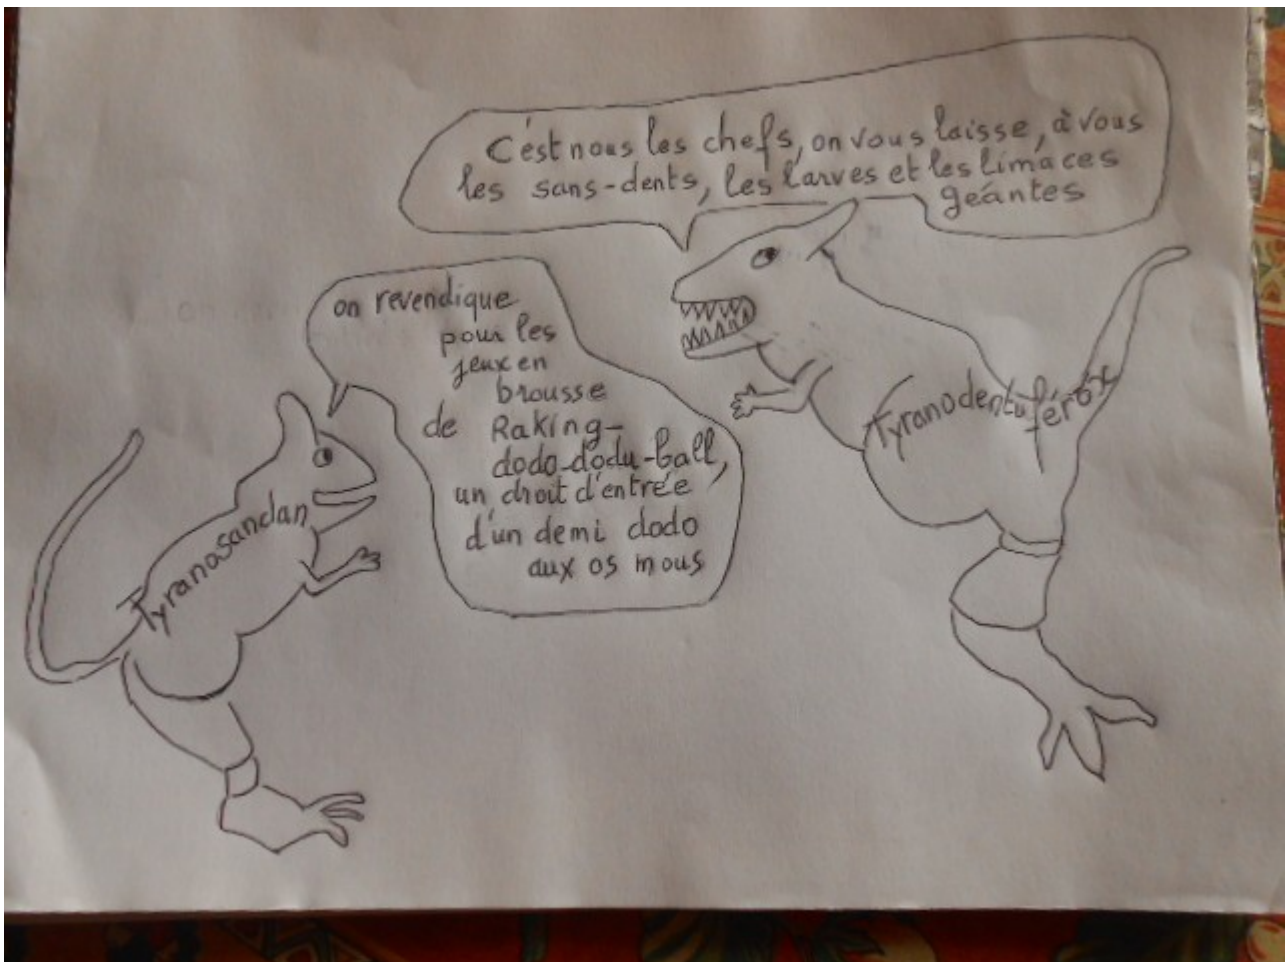 C'est nous les chefs, on vous laisse, à vous
les sans-dents, les larves et les limaces
géantes
on revendique
pour les
jeux en
brousse
de Raking-
dodo-dodu-ball,
un droit d'entrée
d'un demi dodo
aux os mous
Tyranosandan
Tyranodentuféröx